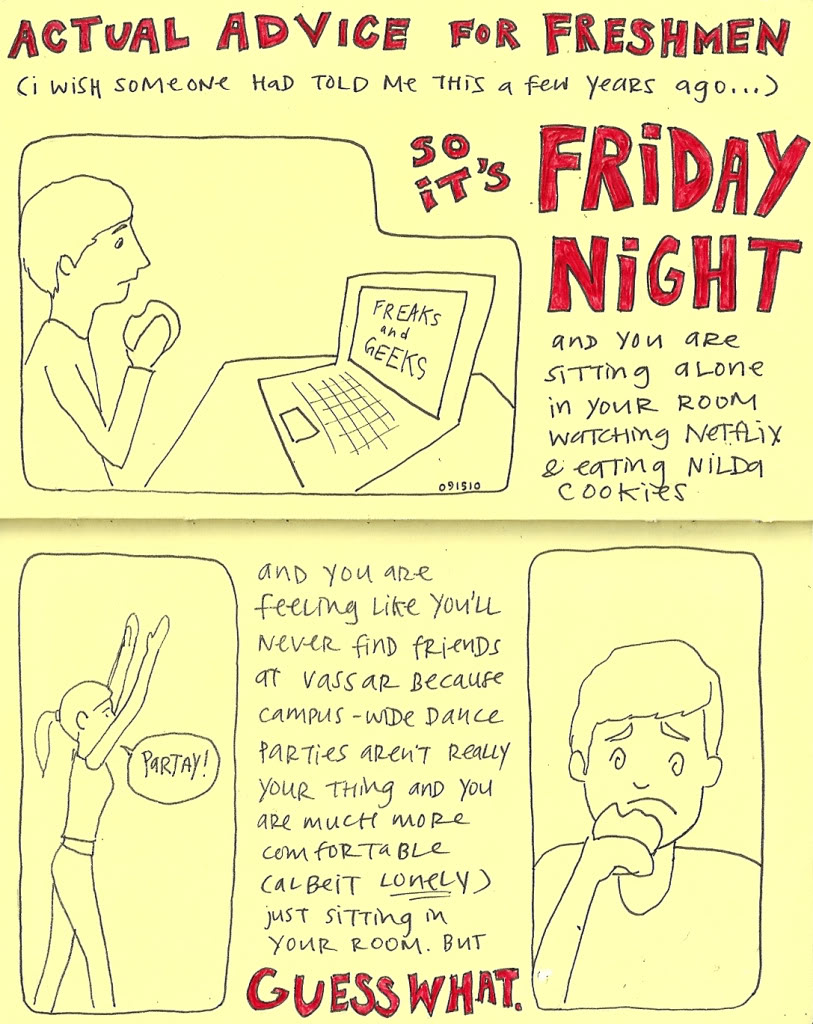 ACTUAL ADVICE FOR FRESHMEN
(i WISH SOMEONE HAD TOLD ME THIS a few years ago...)
SO
iT'S
FRiDAY
NiGHT
FREAKS
and
GEEKS
091510
and you are
sitting alone
in your room
watching Netflix
& eating Nilda
cookies
and you are
feeling like you'll
never find friends
at Vassar because
campus-wide dance
parties aren't really
your thing and you
are much more
comfortable
(albeit lonely)
just sitting in
your room. But
GUESS WHAT.
PARTAY!